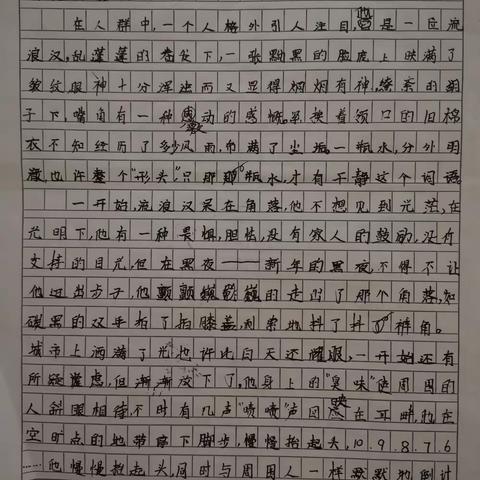 在人群中,一个人格外引人注目,他是一位流
浪汉,乱蓬蓬的卷发下,一张黝黑的脸庞上映满了
皱纹眼神十分浑浊而又显得炯炯有神,缭紊的胡
子下,嘴角有一种感动的感慨。单换着领口的旧棉
衣不知经历了多少风雨,布满了尘垢。一瓶水,分外明
澈也许整个"形头",只那瓶水,才有干静这个词语
一开始,流浪汉呆在角落,他不想见到光茫,在
光明下,他有一种畏惧,胆怯,没有家人的鼓励,没有
支持的目光,但在黑夜——新年的黑夜,不得不让
他迈出步子,他颤颤巍巍的走出了那个角落,如
碳黑的双手拍了拍膝盖,利索地抖了抖裤角。
城市上洒满了光也许比白天还耀眼,一开始还有
所疑虑,但渐渐放下了。他身上的"臭味"使周围的
人斜眼相待不时有几声"啧啧"声回映在耳畔,他在
空旷点的地带停下脚步,慢慢抬起头,10.9.8.7.6
……他慢慢抬起头,同时与周围人一样默默地倒计